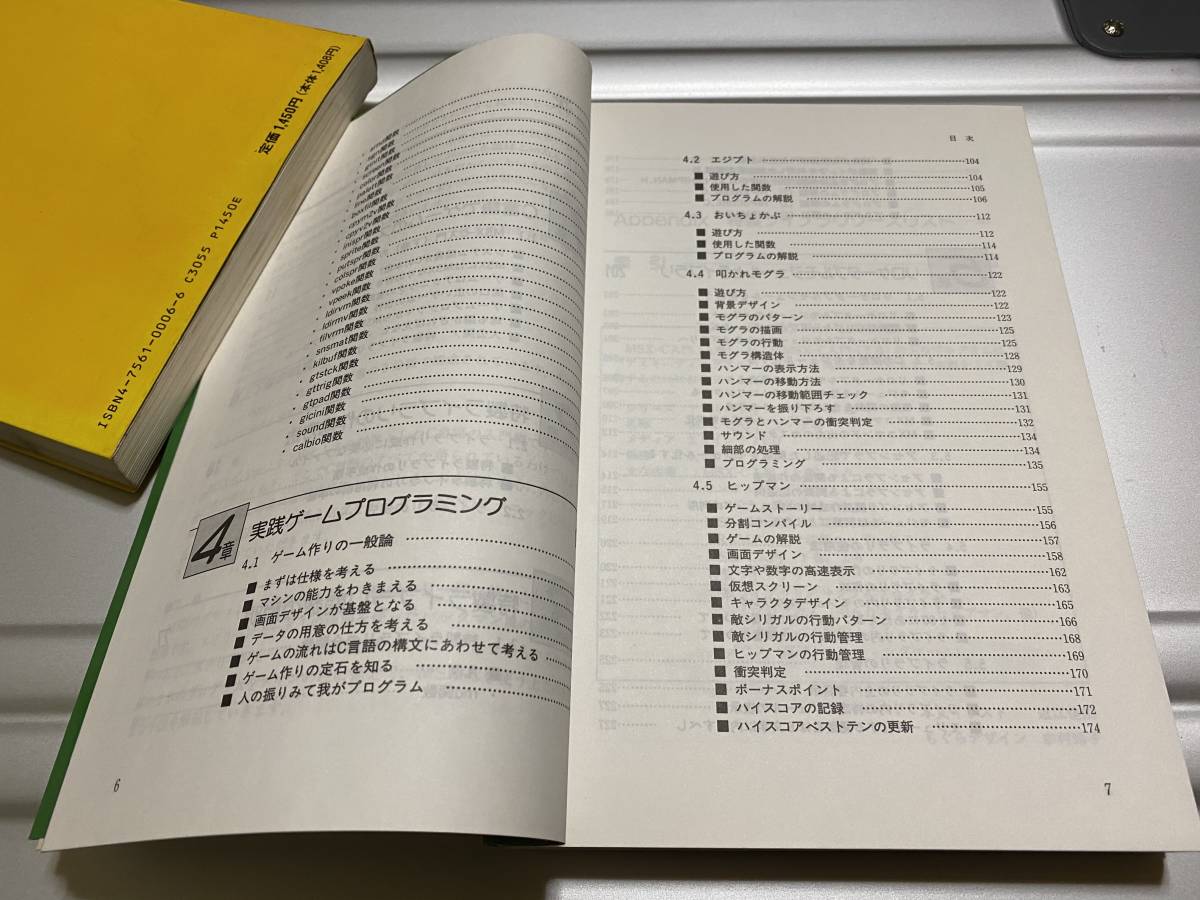 定価1,450円(本体1,408円)
ISBN4-7561-0006-6 C3055 P1450E
color関数
palett関数
line関数
boxfil関数
cpym2v関数
cprv2v関数
inispr関数
sprite関数
putspr関数
colspr関数
vpoke関数
vpeek関数
ldirvm関数
ldirmv関数
filvrm関数
snsmat関数
kilbuf関数
gtstck関数
gttrig関数
gtpad関数
gicini関数
sound関数
calbio関数
4章 実践ゲームプログラミング
4.1 ゲーム作りの一般論
■ まずは仕様を考える
■ マシンの能力をわきまえる
■ 画面デザインが基盤となる
■ データの用意の仕方を考える
■ ゲームの流れはC言語の構文にあわせて考える
■ ゲーム作りの定石を知る
■ 人の振りみて我がプログラム
6
目 次
4.2 エジプト 104
■ 遊び方 104
■ 使用した関数 105
■ プログラムの解説 106
4.3 おいちょかぶ 112
■ 遊び方 112
■ 使用した関数 114
■ プログラムの解説 114
4.4 叩かれモグラ 122
■ 遊び方 122
■ 背景デザイン 122
■ モグラのパターン 123
■ モグラの描画 125
■ モグラの行動 125
■ モグラ構造体 128
■ ハンマーの表示方法 129
■ ハンマーの移動方法 130
■ ハンマーの移動範囲チェック 131
■ ハンマーを振り下ろす 131
■ モグラとハンマーの衝突判定 132
■ サウンド 134
■ 細部の処理 134
■ プログラミング 135
4.5 ヒップマン 155
■ ゲームストーリー 155
■ 分割コンパイル 156
■ ゲームの解説 157
■ 画面デザイン 158
■ 文字や数字の高速表示 162
■ 仮想スクリーン 163
■ キャラクタデザイン 165
■ 敵シリガルの行動パターン 166
■ 敵シリガルの行動管理 168
■ ヒップマンの行動管理 169
■ 衝突判定 170
■ ボーナスポイント 171
■ ハイスコアの記録 172
■ ハイスコアベストテンの更新 174
7